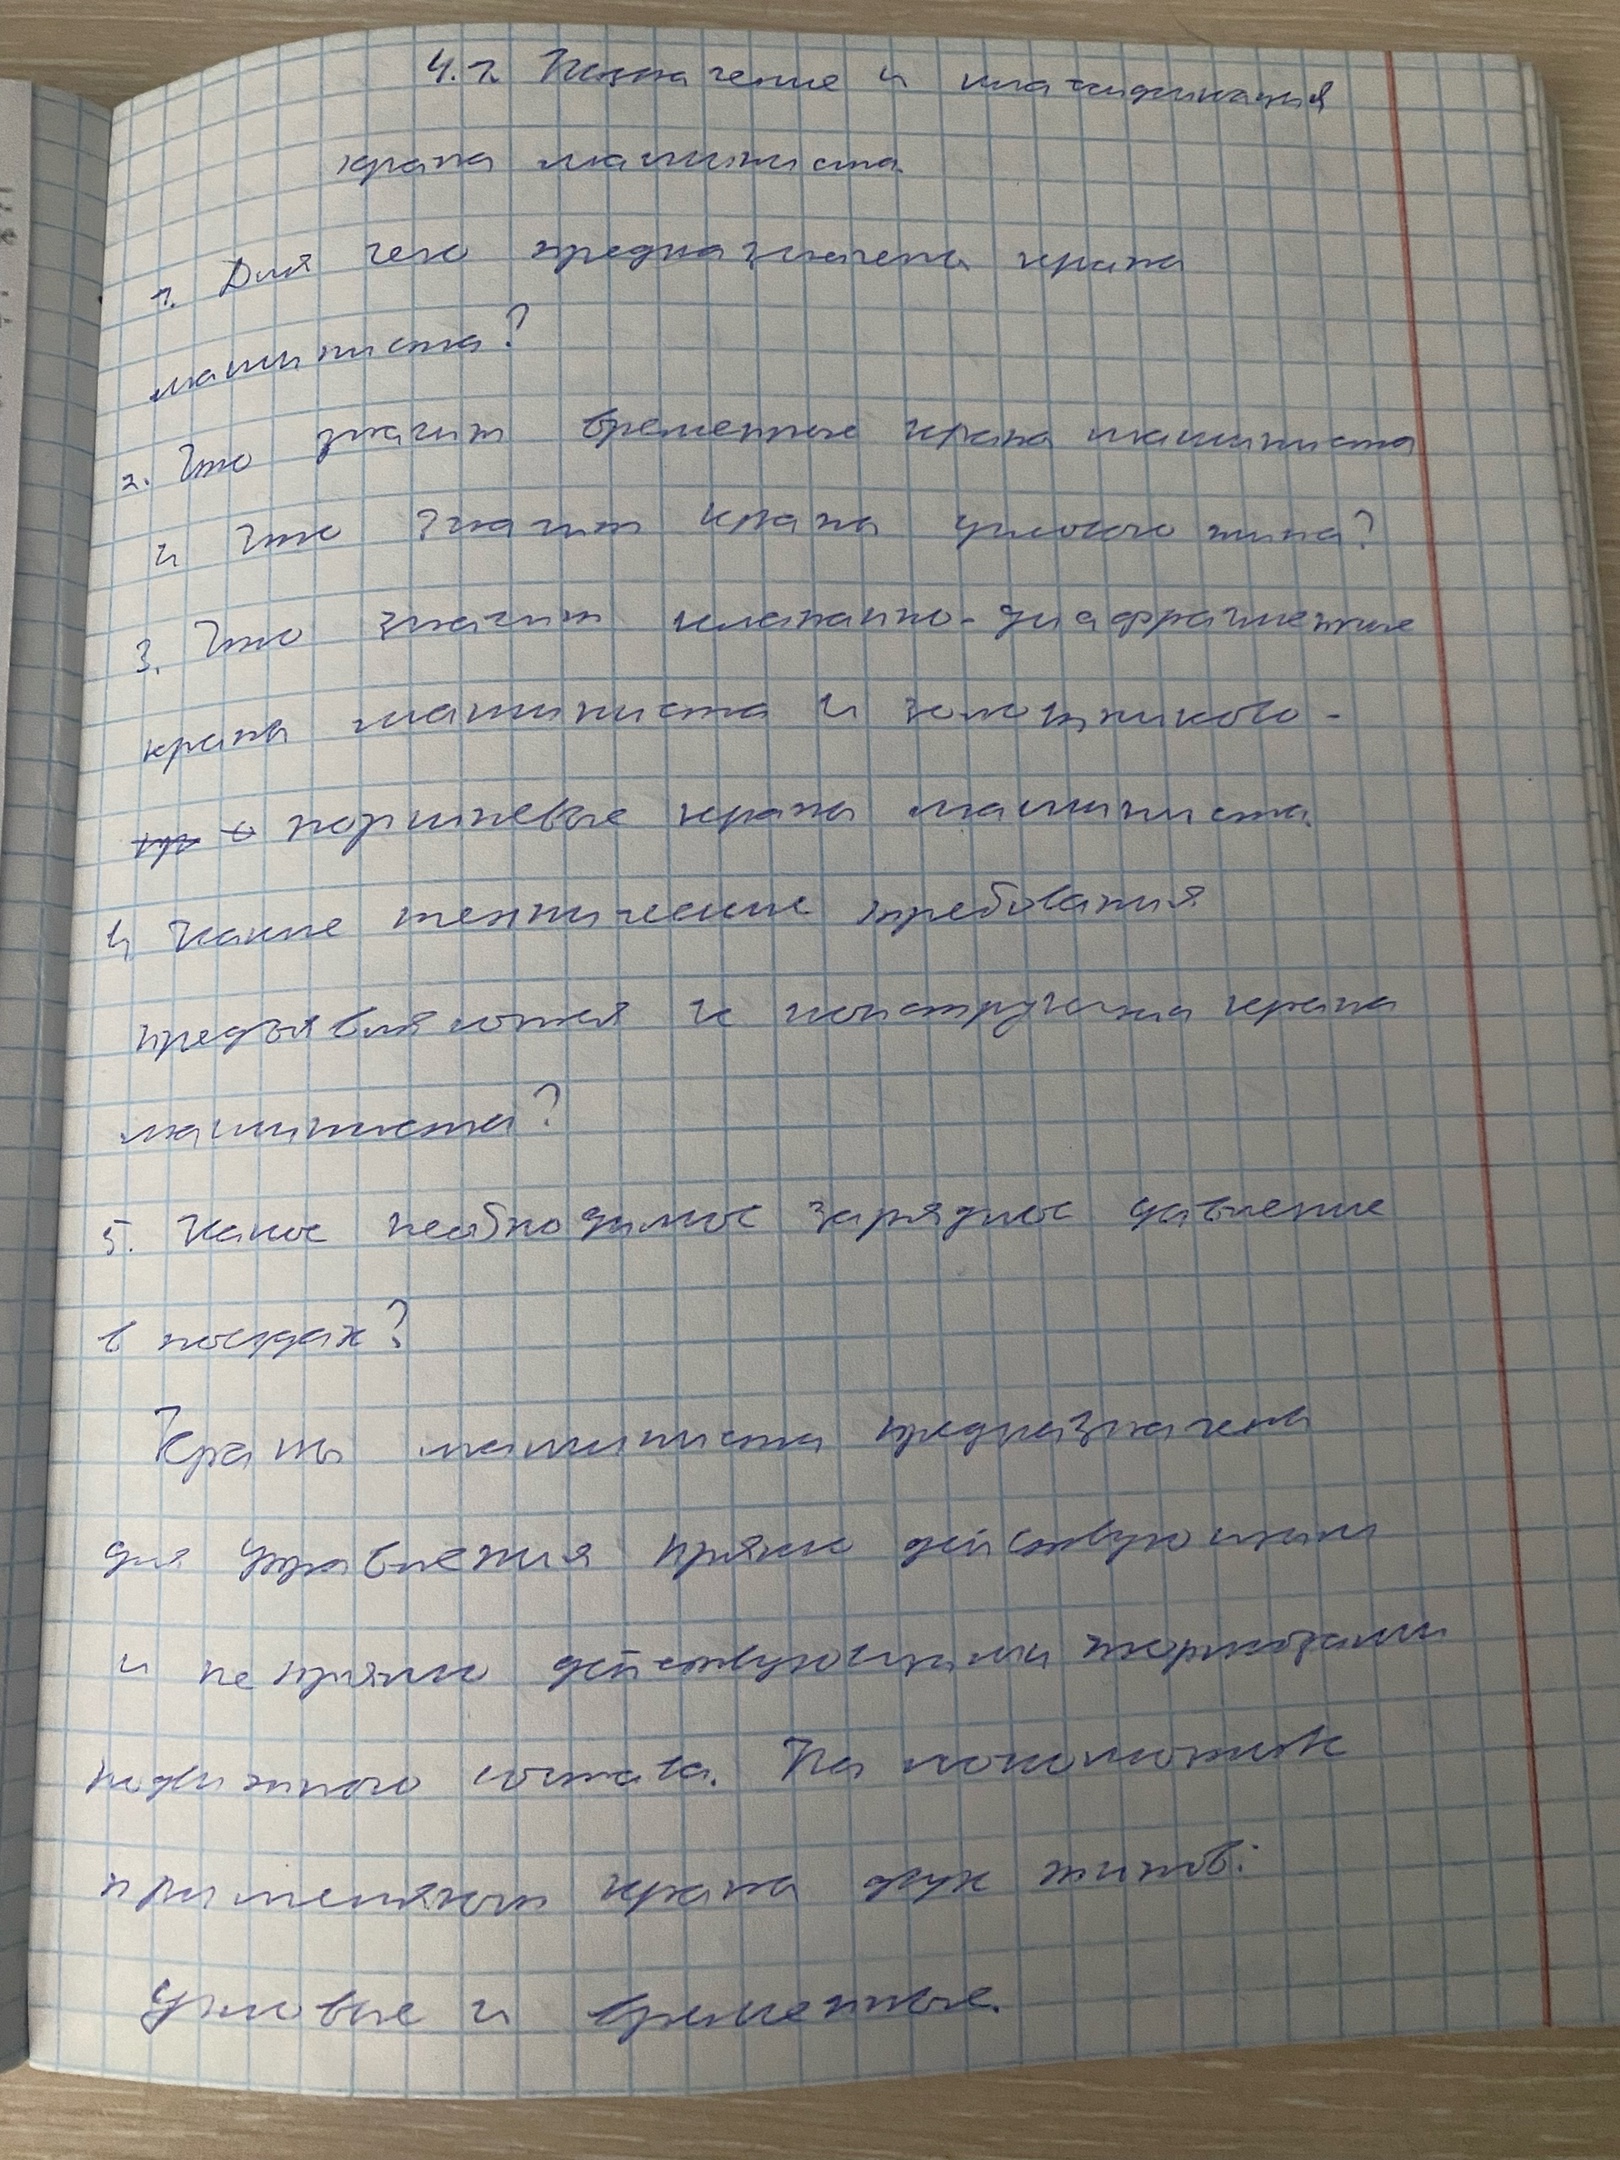 4.1. Назначение и классификация
крана машиниста.
1. Для чего предназначены крана
машиниста?
2. Что значит временные крана машиниста
и что значит краны углового типа?
3. Что значит клапанно-диафрагменные
краны машиниста и золотниково-
поршневые краны машиниста.
4, Какие технические требования
предъявляются к конструкциа крана
машиниста?
5. Какое необходимое зарядное давление
в поездах?
Краны машиниста предназначены
для управления прямо действующими
и не прямо действующими тормозами
подвижного состава. На локомотивах
применяют крана двух типов:
Угловые и временные.